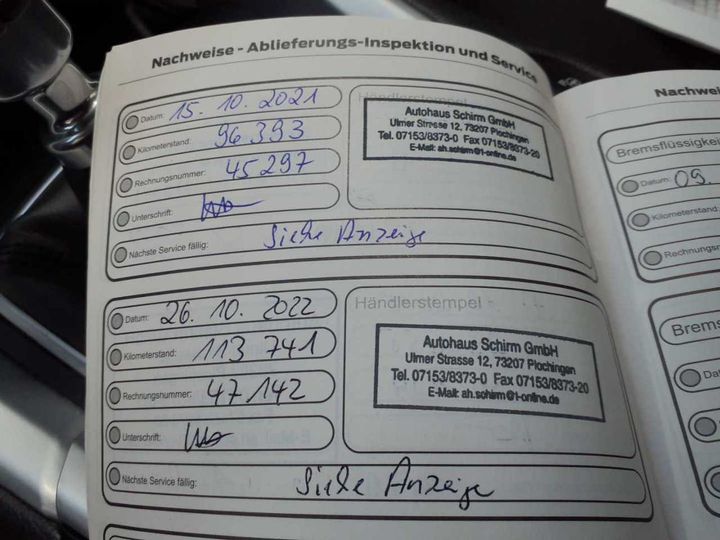 Nachweise - Ablieferungs-Inspektion und Service
Datum: 15. 10. 2021
Kilometerstand: 96 393
Rechnungsnummer: 45297
Unterschrift:
Nächste Service fällig: Siehe Anzeige
Händlerstempel
Autohaus Schirm GmbH
Ulmer Strasse 12, 73207 Plochingen
Tel. 07153/8373-0 Fax 07153/8373-20
E-Mail: ah.schirm@t-online.de
Datum: 26. 10. 2022
Kilometerstand: 113 741
Rechnungsnummer: 47142
Unterschrift:
Nächste Service fällig: Siehe Anzeige
Händlerstempel
Autohaus Schirm GmbH
Ulmer Strasse 12, 73207 Plochingen
Tel. 07153/8373-0 Fax 07153/8373-20
E-Mail: ah.schirm@t-online.de
Nachwei
Bremsflüssigkei
Datum: 09.
Kilometerstand
Rechnungsn
Brems
Dat